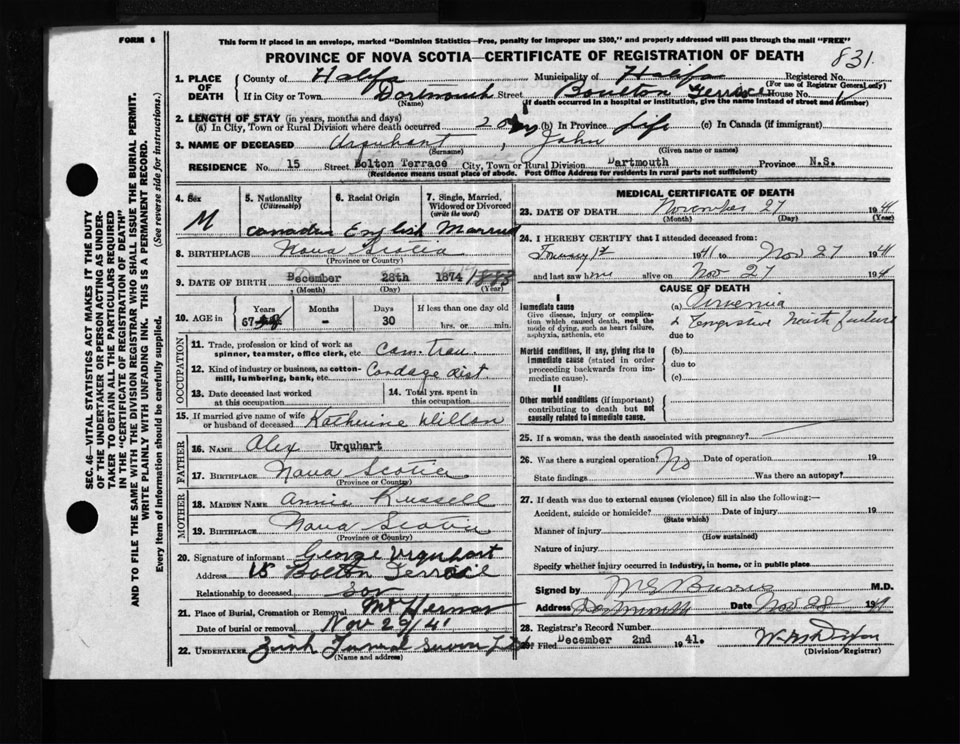 FORM 6
This form if placed in an envelope, marked "Dominion Statistics—Free, penalty for improper use $300," and properly addressed will pass through the mail "FREE"
PROVINCE OF NOVA SCOTIA—CERTIFICATE OF REGISTRATION OF DEATH 831
1. PLACE OF DEATH County of Halifax Municipality of Halifax Registered No. (For use of Registrar General only)
If in City or Town Dartmouth (Name) Street Boulton Terrace House No.
(If death occurred in a hospital or institution, give the name instead of street and number)
2. LENGTH OF STAY (in years, months and days)
(a) In City, Town or Rural Division where death occurred 20 (b) In Province Life (c) In Canada (if immigrant)
3. NAME OF DECEASED Urquhart, John
(Surname) (Given name or names)
RESIDENCE No. 15 Street Bolton Terrace City, Town or Rural Division Dartmouth Province N.S.
(Residence means usual place of abode. Post Office Address for residents in rural parts not sufficient)
4. Sex M
5. Nationality (Citizenship) Canadian
6. Racial Origin English
7. Single, Married, Widowed or Divorced (write the word) Married
8. BIRTHPLACE Nova Scotia
(Province or Country)
9. DATE OF BIRTH December 28th 1874 1883
(Month) (Day) (Year)
10. AGE in Years 67 Months - Days 30 If less than one day old hrs. or min.
OCCUPATION
11. Trade, profession or kind of work as spinner, teamster, office clerk, etc.
12. Kind of industry or business, as cotton-mill, lumbering, bank, etc. Cordage
13. Date deceased last worked at this occupation
14. Total yrs. spent in this occupation
15. If married give name of wife or husband of deceased Katherine
FATHER
16. NAME Alex Urquhart
17. BIRTHPLACE Nova Scotia
(Province or Country)
MOTHER
18. MAIDEN NAME Annie Russell
19. BIRTHPLACE Nova Scotia
(Province or Country)
20. Signature of informant George Urquhart
Address 15 Bolton Terrace
Relationship to deceased Son
21. Place of Burial, Cremation or Removal Mt Hermon
Date of burial or removal Nov 29/41
22. UNDERTAKER Zink Funeral
(Name and address)
MEDICAL CERTIFICATE OF DEATH
23. DATE OF DEATH November 27 1941
(Month) (Day) (Year)
24. I HEREBY CERTIFY that I attended deceased from:
1941 to Nov 27 1941
and last saw him alive on Nov 27 1941
CAUSE OF DEATH
I
Immediate cause
Give disease, injury or complication which caused death, not the mode of dying, such as heart failure, asphyxia, asthenia, etc
(a)
& Congestive heart failure
due to
Morbid conditions, if any, giving rise to immediate cause (stated in order proceeding backwards from immediate cause).
(b)
due to
(c)
II
Other morbid conditions (if important) contributing to death but not causally related to immediate cause.
25. If a woman, was the death associated with pregnancy?
26. Was there a surgical operation? No Date of operation 19
State findings Was there an autopsy?
27. If death was due to external causes (violence) fill in also the following:—
Accident, suicide or homicide? Date of injury 19
(State which)
Manner of injury
(How sustained)
Nature of injury
Specify whether injury occurred in industry, in home, or in public place
Signed by M.D.
Address Dartmouth Date Nov 28 1941
28. Registrar's Record Number
29. Filed December 2nd 1941.
(Division Registrar)
SEC. 46—VITAL STATISTICS ACT MAKES IT THE DUTY
OF THE UNDERTAKER OR PERSON ACTING AS UNDER-
TAKER TO OBTAIN ALL THE PARTICULARS REQUIRED
IN THE "CERTIFICATE OF REGISTRATION OF DEATH"
AND TO FILE THE SAME WITH THE DIVISION REGISTRAR WHO SHALL ISSUE THE BURIAL PERMIT.
WRITE PLAINLY WITH UNFADING INK. THIS IS A PERMANENT RECORD.
Every item of information should be carefully supplied. (See reverse side for instructions.)